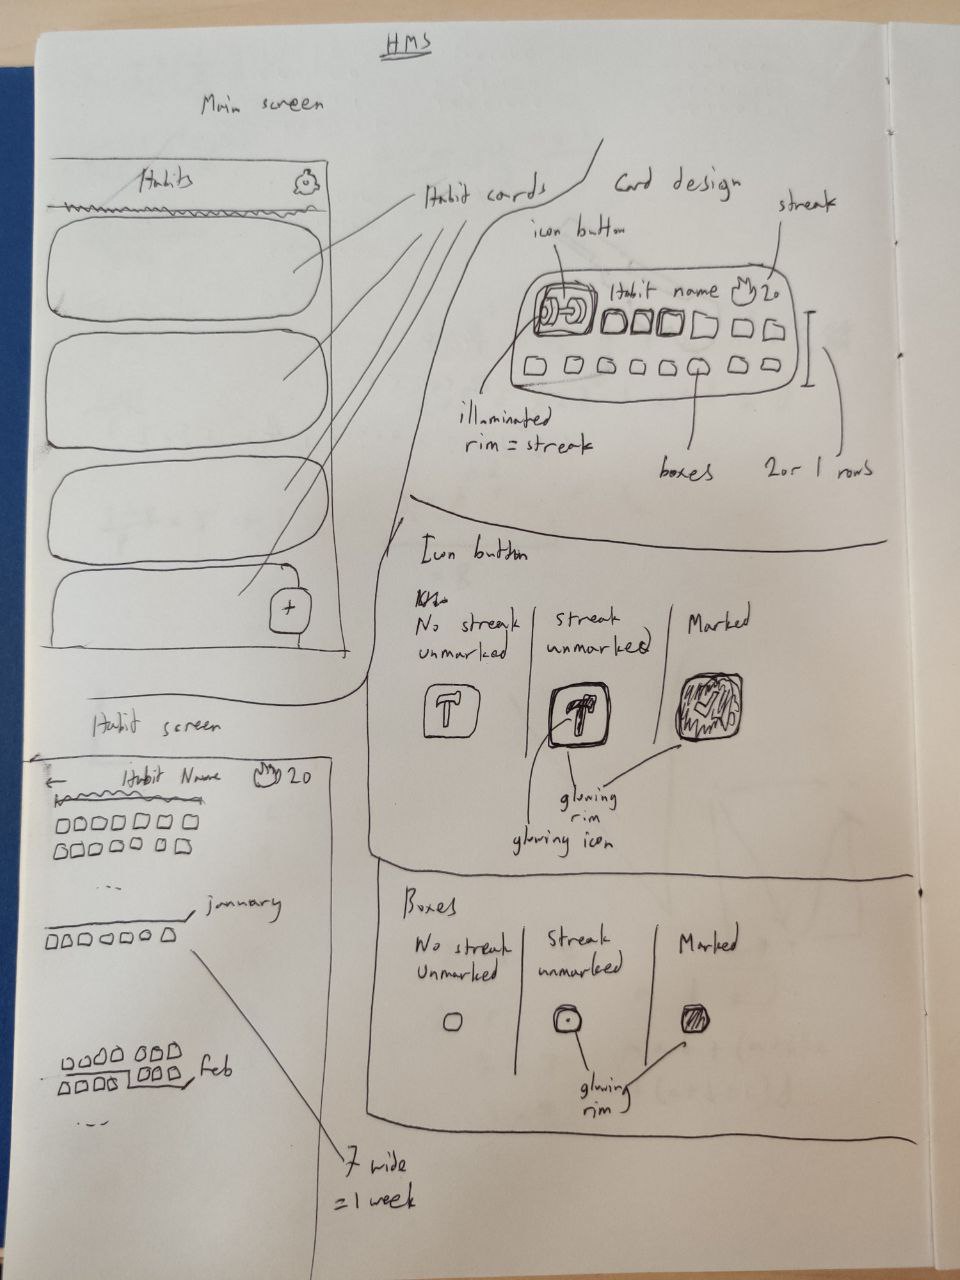 HMS
Main screen
Habits
Habit cards
+
Card design
streak
icon button
Habit name 20
illuminated
rim = streak
boxes
2 or 1 rows
Icon button
No streak
unmarked
streak
unmarked
Marked
glowing
rim
glowing icon
Habit screen
← Habit Name 20
...
january
feb
...
7 wide
= 1 week
Boxes
No streak
unmarked
Streak
unmarked
Marked
glowing
rim